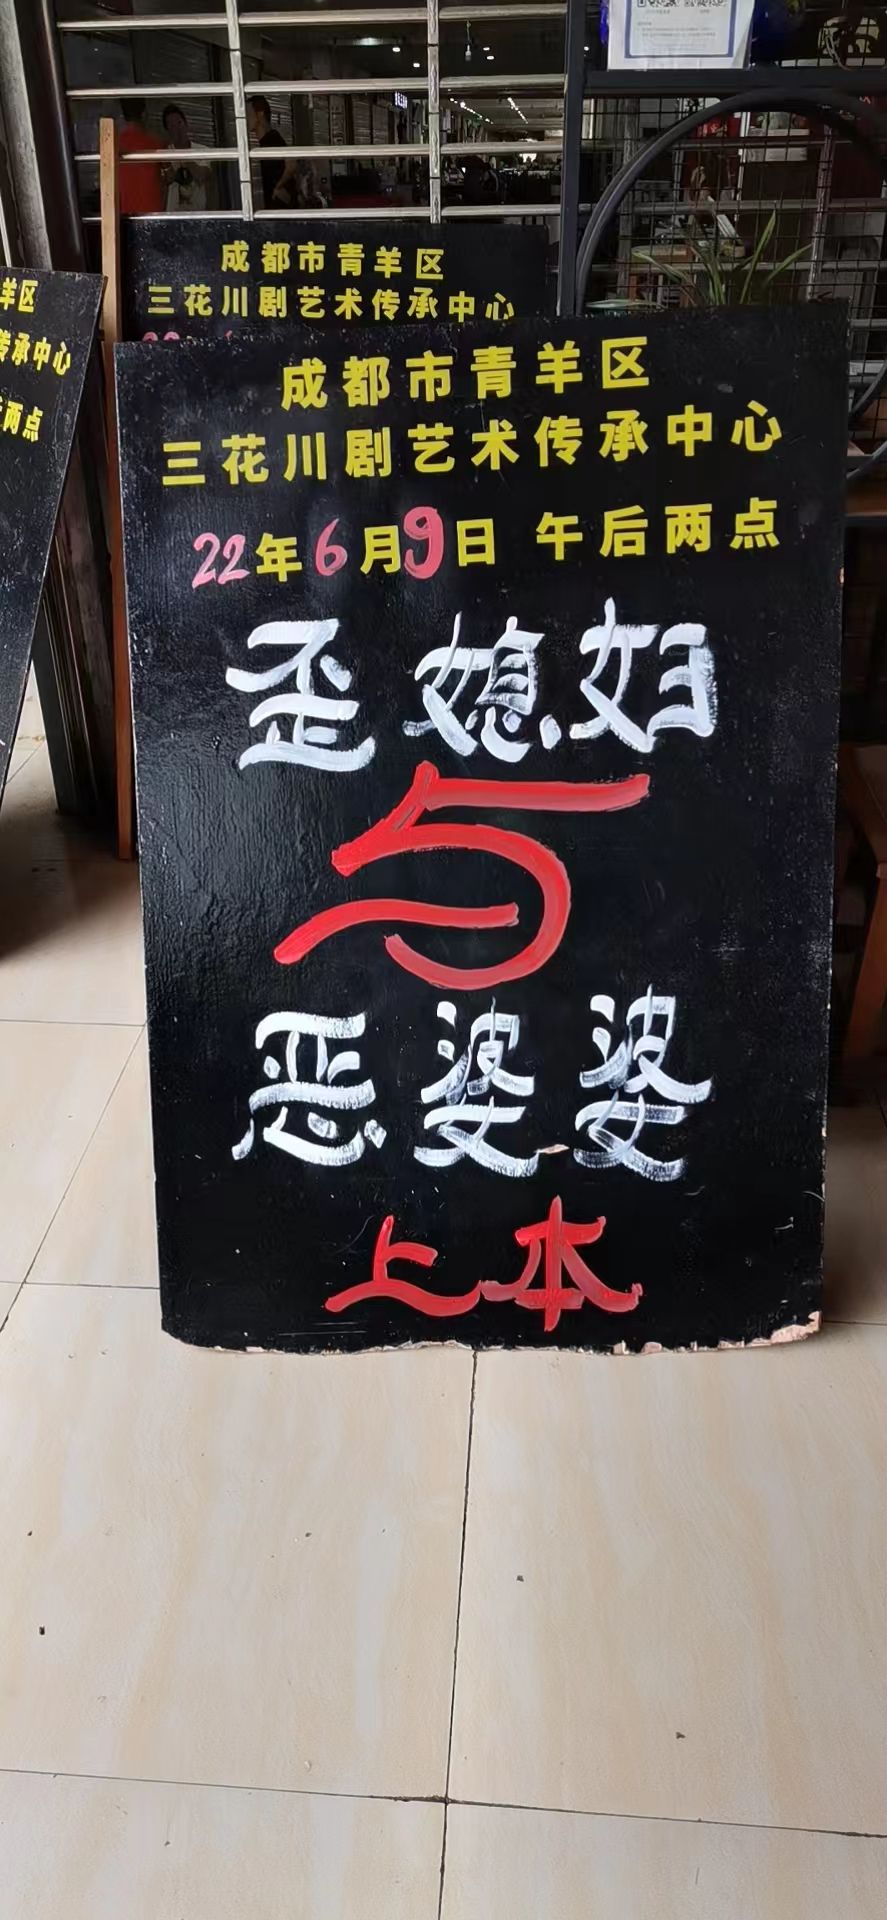 成都市青羊区
三花川剧艺术传承中心
羊区
传承中心
后两点
成都市青羊区
三花川剧艺术传承中心
22年6月9日 午后两点
歪媳妇
与
恶婆婆
上本